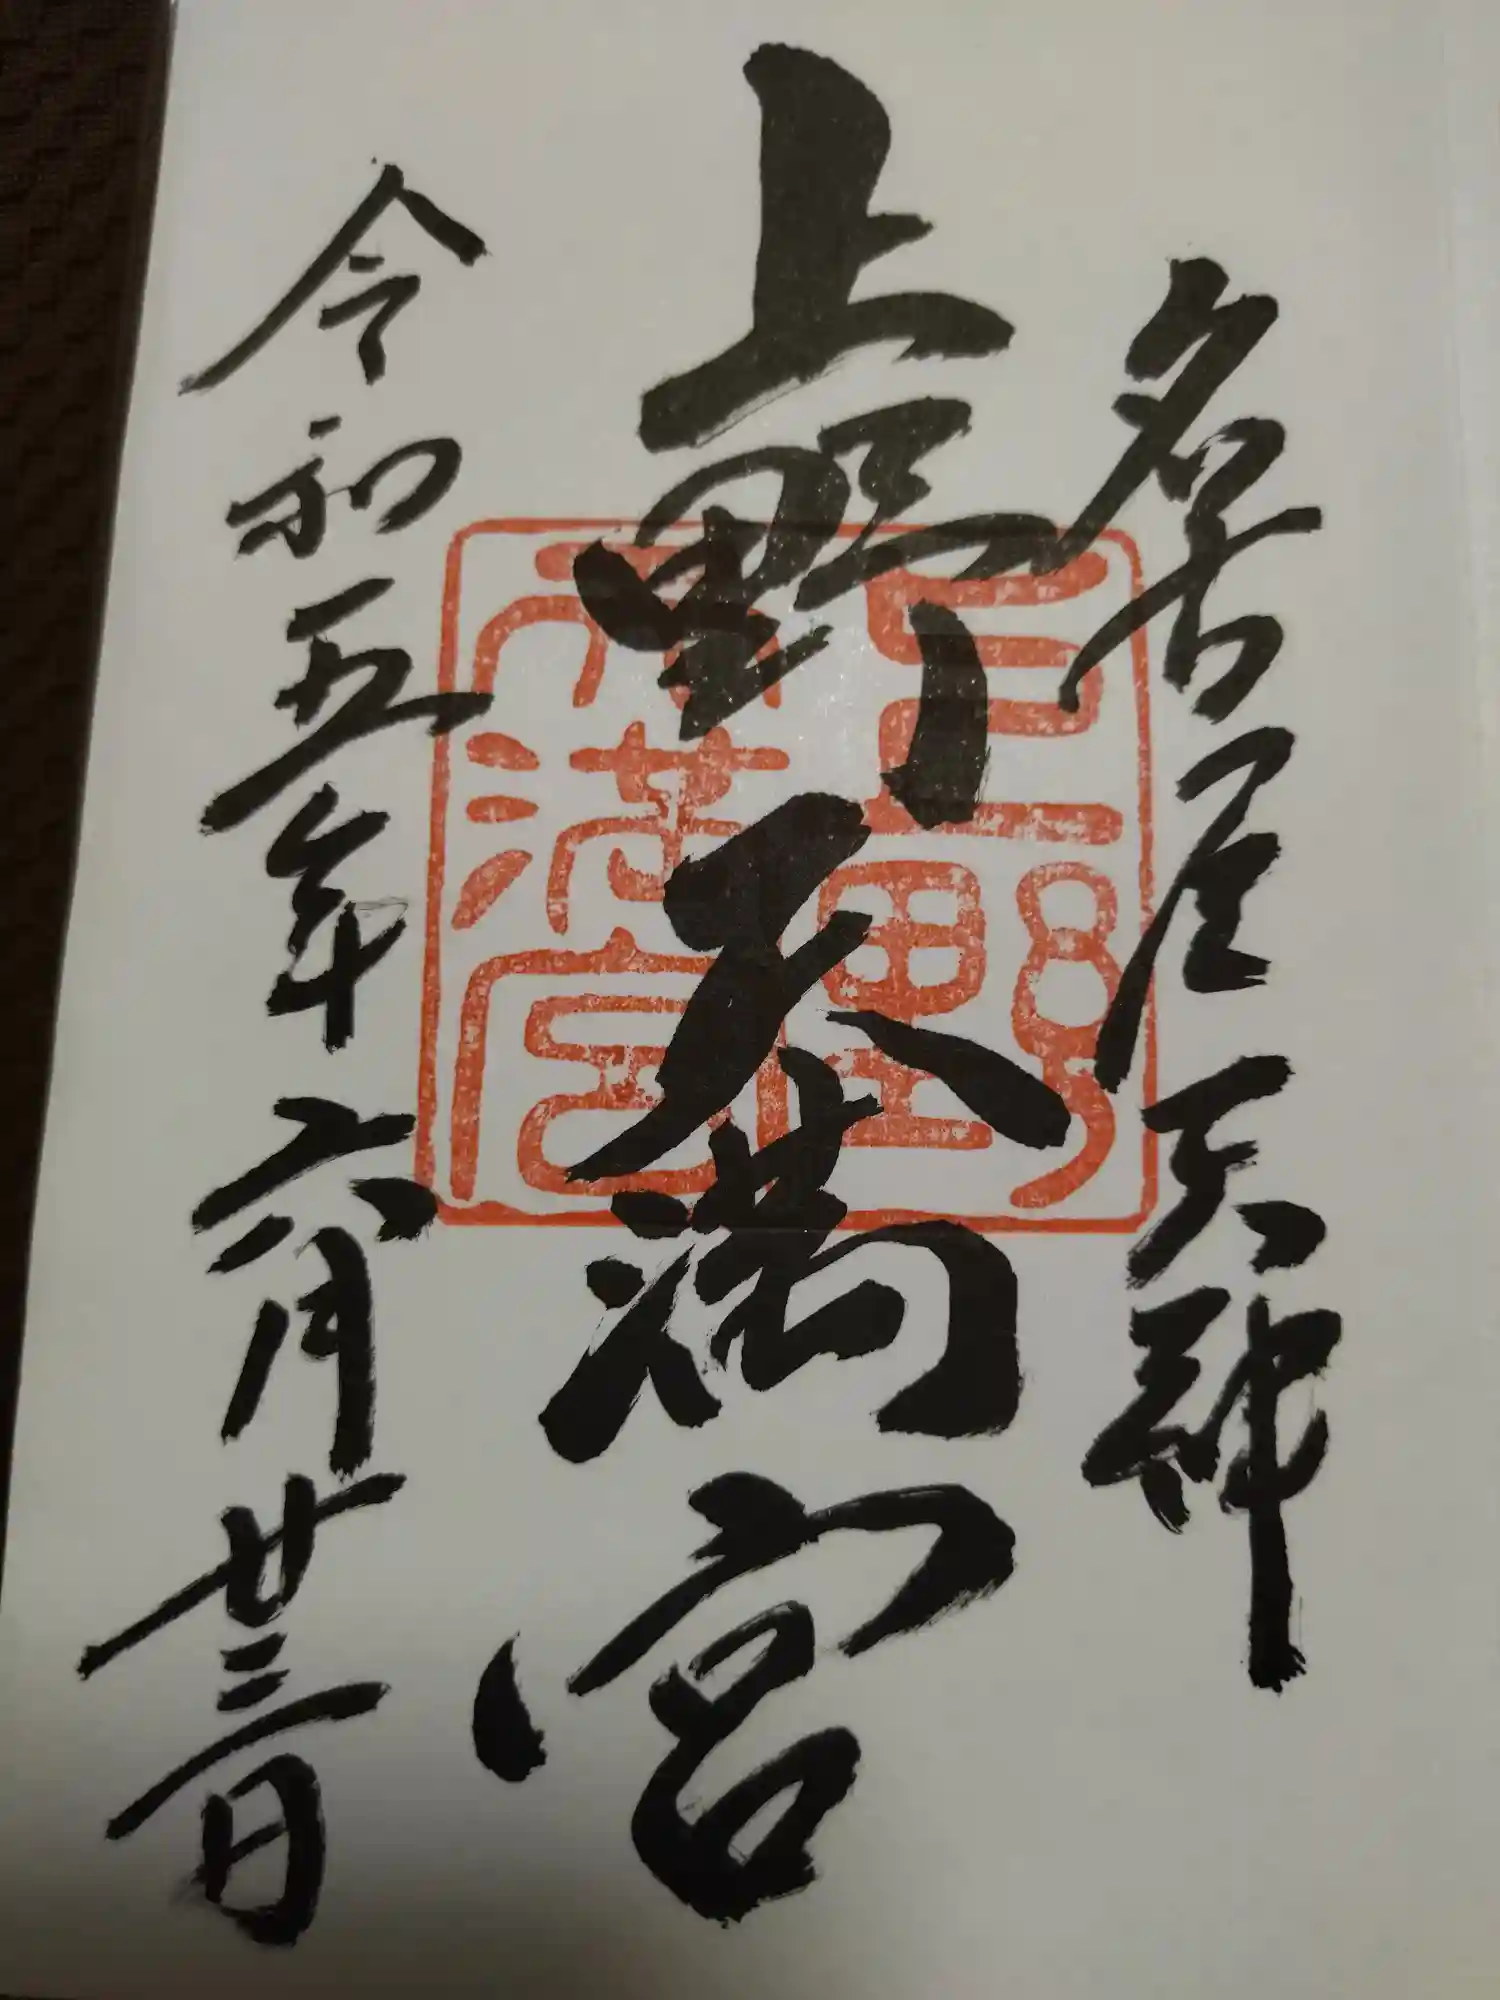 名古屋天神
上野天満宮
令和五年六月廿三日
上野
天満宮